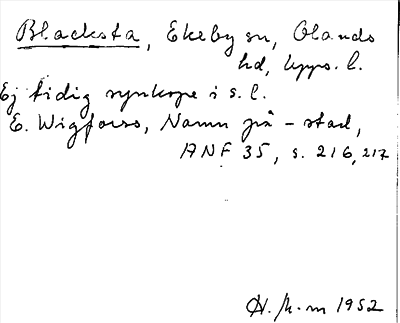 Blacksta, Ekeby sn, Olands
hd, Upps. l.
Ej tidig synkope i s. l.
E. Wigforss, Namn på -stad,
ANF 35, s. 216, 217
H. K-m 1952